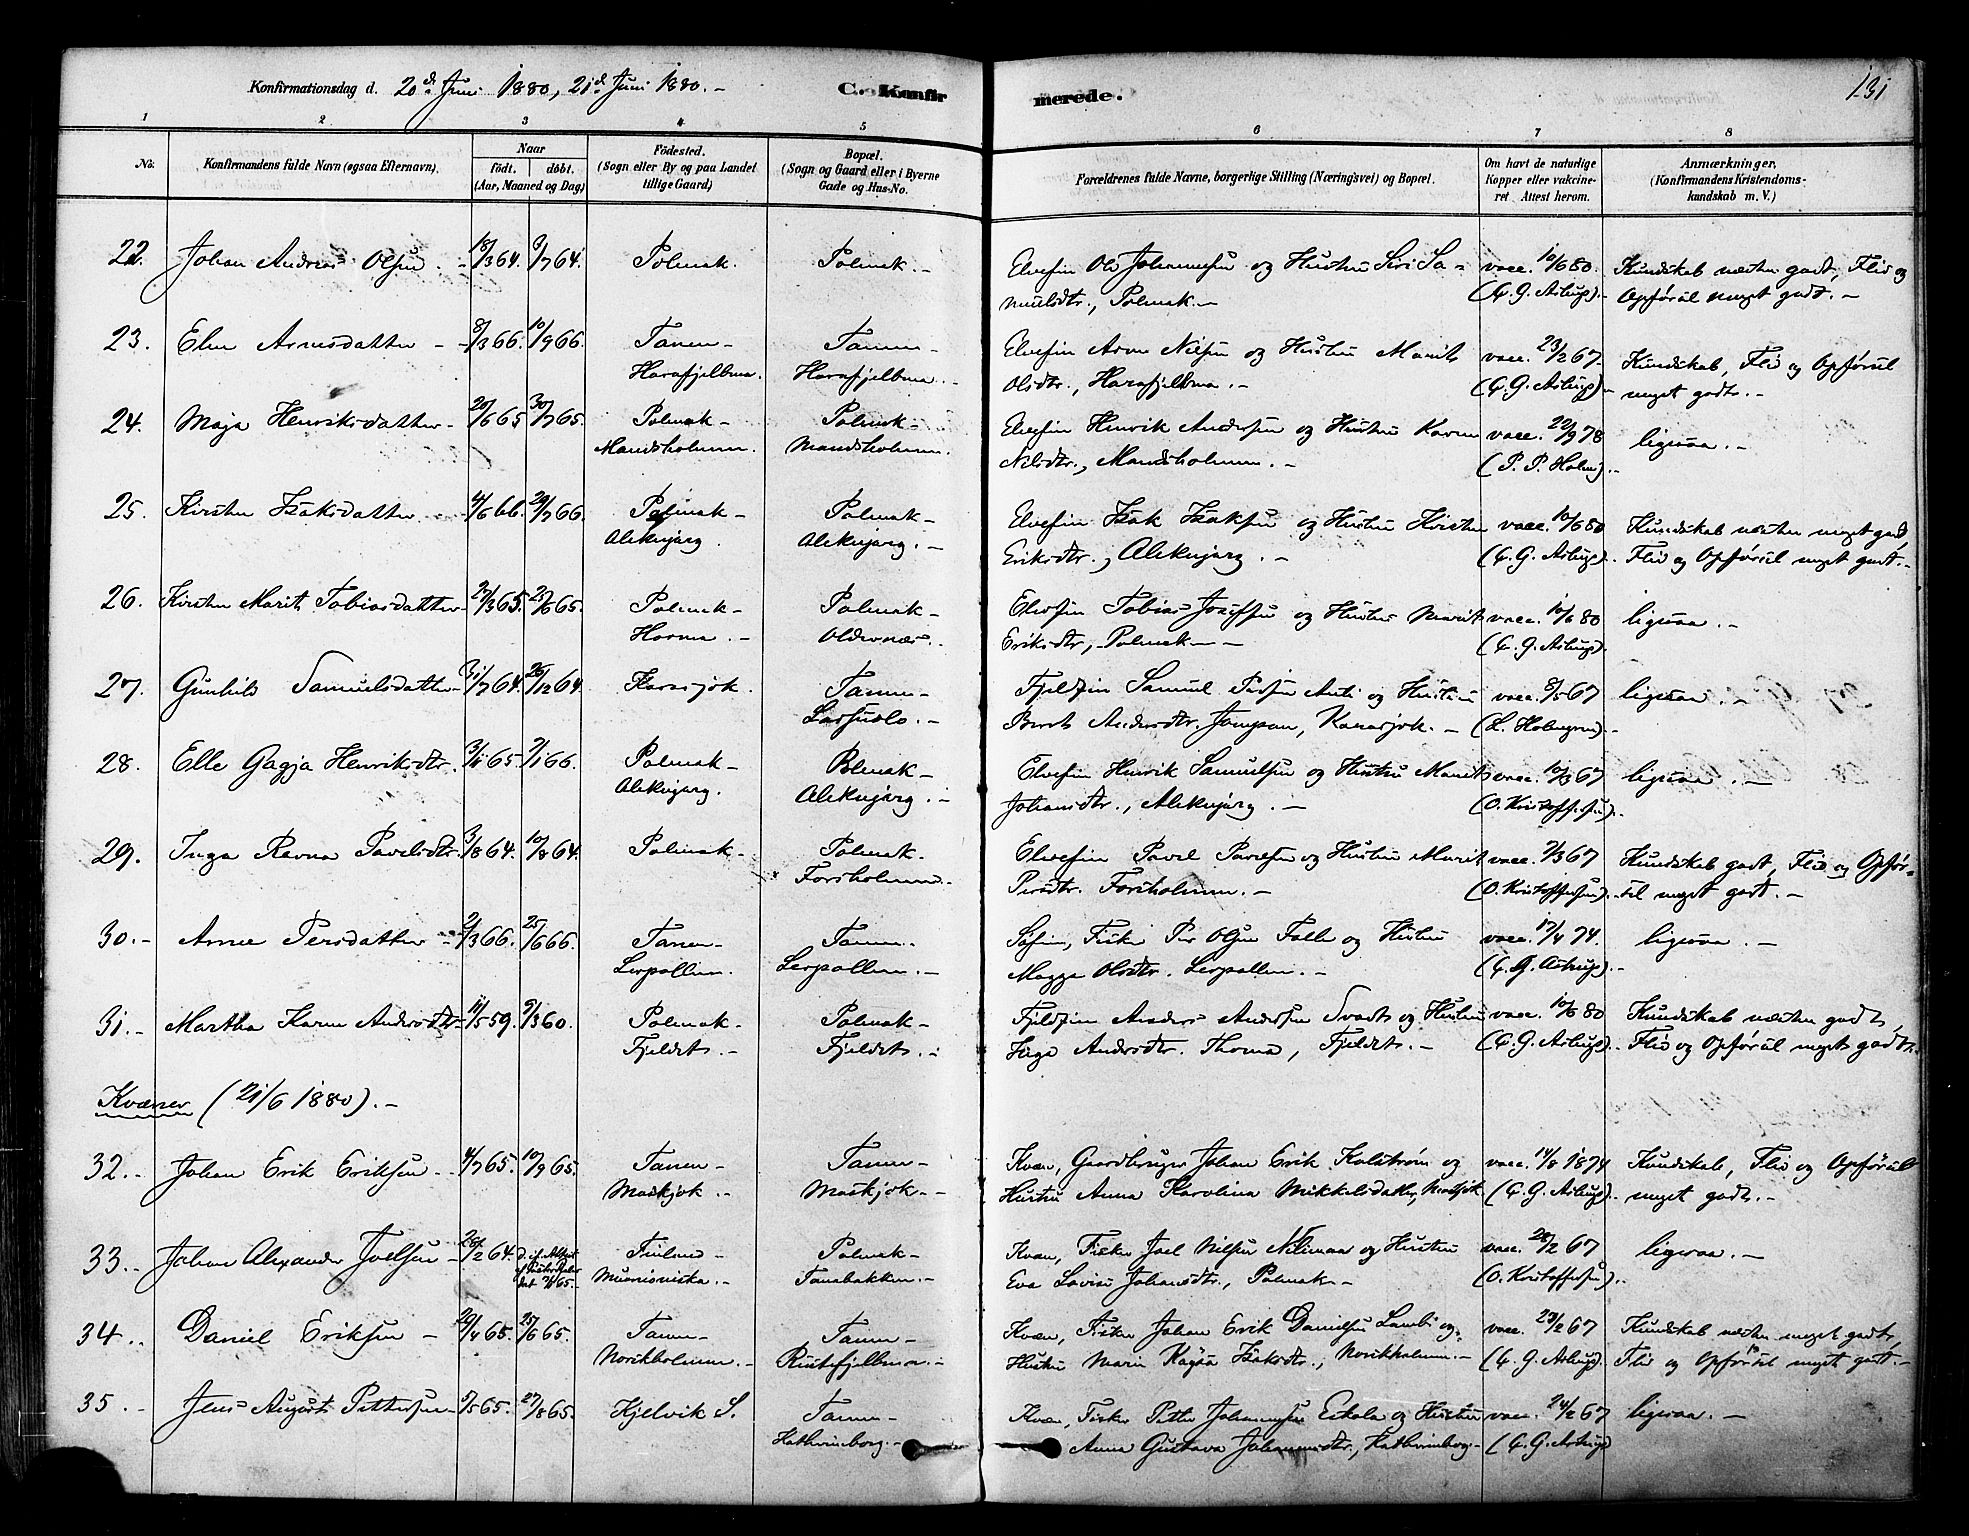 Konfirmationsdag d. 20de Juni 1880, 21de Juni 1880. -
C. Konfir
merede.
131
1 2 3 4 5 6 7 8
No. Konfirmandens fulde Navn (ogsaa Efternavn). Naar født. døbt. (Aar, Maaned og Dag) Fødested. (Sogn eller By og paa Landet tillige Gaard) Bopæl. (Sogn og Gaard eller i Byerne Gade og Hus-No. Forældrenes fulde Navne, borgerlige Stilling (Næringsvei) og Bopæl. Om havt de naturlige Kopper eller vakcineret Attest herom. Anmærkninger. (Konfirmandens Kristendomskundskab m. V.)
22. Johan Andreas Olsen. - 18/3 64. 9/7 64. Polmak. Polmak. - Elvefin Ole Johannesen og Hustru Siri Sa- vacc. 10/6 80. Kundskab næsten godt, Flid og
muelsdtr., Polmak. - (C. G. Astrup). - Opførsel meget godt. -
23. Elen Arnesdatter - 8/3 66. 10/9 66. Tanen - Tanen - Elvefin Arne Nilsen og Hustru Marit vacc. 23/2 67 Kundskab, Flid og Opførsel
Harafjelbma. Harafjelbma. - Olsdtr., Harafjelbma. - (C. G. Astrup). - meget godt. -
24. Maja Henriksdatter - 20/6 65 30/7 65. Polmak - Polmak - Elvefin Henrik Andersen og Hustru Karen vacc. 22/9 78 ligesaa. -
Mandsholmen. Mandsholmen. Nilsdtr., Mandsholmen. - (P. P. Holm).
25. Kirsten Isaksdatter - 4/6 66. 29/7 66. Polmak - Polmak - Elvefin Isak Isaksen og Hustru Kirsten vacc. 10/6 80 Kundskab næsten meget godt
Aleknjarg. Aleknjarg. - Eriksdtr., Aleknjarg. - (C. G. Astrup). Flid og Opførsel meget godt. -
26. Kirsten Marit Tobiasdatter 27/3 65. 25/6 65. Polmak - Polmak - Elvefin Tobias Josefsen og Hustru Marit vacc. 10/6 80 ligesaa. -
Horma. - Oldernæs. Eriksdtr., Polmak - (C. G. Astrup).
27. Gunhild Samuelsdatter - 31/7 64. 26/12 64. Karasjok. Tanen - Fjeldfin Samuel Persen Anti og Hustru vacc. 8/5 67 ligesaa. -
- Berit Andersdtr. , Karasjok. - (L. Holmgren).
28. Elle Gagja Henriksdtr. 3/11 65. 7/1 66. Polmak - Polmak - Elvefin Henrik Samuelsen og Hustru Marit vacc. 10/3 67 ligesaa. -
Aleknjarg. Aleknjarg. - Johansdtr., Aleknjarg. - (O. Kristoffersen).
29. Inga Ravna Pavelsdtr. 3/8 64. 10/8 64. Polmak - Polmak. Elvefin Pavel Pavelsen og Hustru Marit vacc. 7/3 67 Kundskab godt, Flid og Opfør-
Forsholmen. Persdtr. Forsholmen. - (O. Kristoffersen). sel meget godt. -
30. - Arne Persdatter - 2/3 66. 25/6 66. Tanen - Tanen - Søfin, Fisker Per Olsen Falle og Hustru vacc. 17/4 74. ligesaa. -
Lerpollen. Lerpollen. - Magga Olsdtr. Lerpollen. - (C. G. Astrup). -
31. - Martha Karen Andersdtr - 11/5 59. 9/3 60. Polmak - Polmak - Fjeldfin Anders Andersen Svadt og Hustru vacc. 10/6 80 Kundskab næsten godt,
Fjeldet. - Fjeldet. - Inga Andersdtr. Thoma, Fjeldet. - (C. G. Astrup). - Flid og Opførsel meget godt. -
Kvæner (21/6 1880). -
32. - Johan Erik Eriksen - 4/7 65. 10/9 65. Tanen - Tanen - Kvæn, Gaardbruger Johan Erik Kalstrøm og vacc. 14/8 1874 Kundskab, Flid og Opførsel
Maskjok. - Maskjok. - Hustru Anna Karolina Mikkelsdatter, Maskjok (C. G. Astrup). meget godt. -
33. - Johan Alexander Joelsen - 28/2 64. Finland - Polmak - Kvæn, Fisker Joel Nilsen Nelimaa og Hustru vacc. 28/2 67 ligesaa. -
Muonioniska. - Tanabakken. - Eva Lovise Johansdtr., Polmak - (O. Kristoffersen).
34. - Daniel Eriksen - 20/4 65. 25/6 65. Tanen - Tanen - Kvæn, Fisker Johan Erik Danielsen Lambi og vacc. 23/2 67 Kundskab næsten meget godt,
Norskholmen. - Rustefjelbma. - Hustru Maria Kajsa Isaksdtr., Norskholmen. - (C. G. Astrup). Flid og Opførsel meget godt. -
35. - Jens August Pettersen 5/5 65. 27/8 65. Kjelvik S. Tanen - Kvæn, Fisker Petter Johannesen Eskola og Hustru vacc. 24/2 67 ligesaa. -
Kathrineborg. - Anna Gustava Johannesdtr., Kathrineborg - (C. G. Astrup)